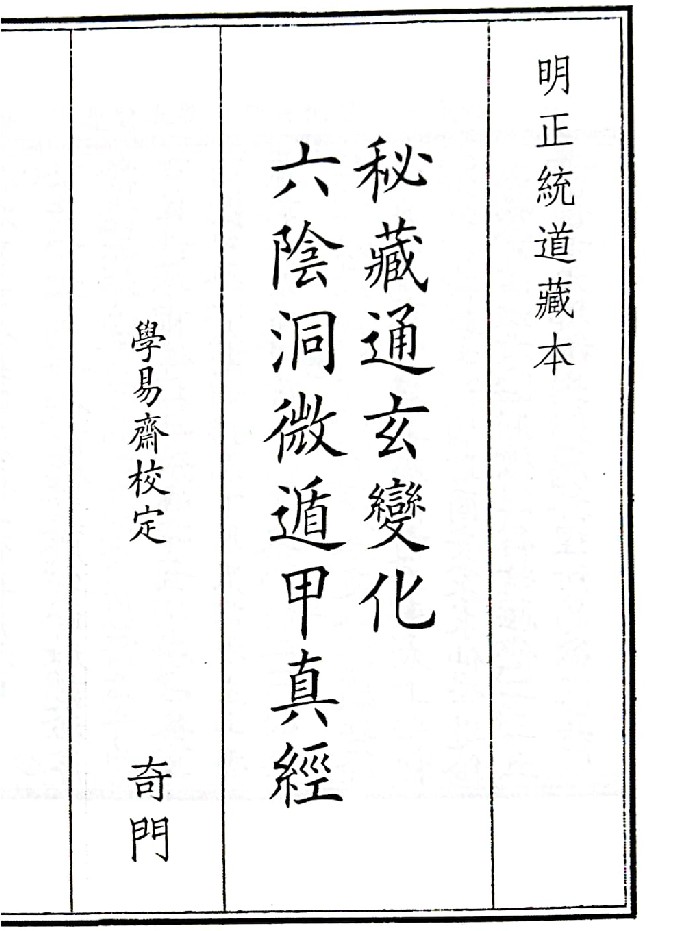 明正統道藏本
秘藏通玄變化
六陰洞微遁甲真經
學易齋校定
奇門